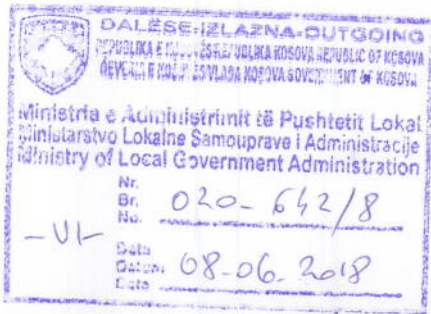 DALËSE-IZLAZNA-OUTGOING
REPUBLIKA E KOSOVËS REPUBLIKA KOSOVA REPUBLIC OF KOSOVA
QEVERIA E KOSOVËS VLADA KOSOVA GOVERNMENT OF KOSOVA
Ministria e Administrimit të Pushtetit Lokal
Ministarstvo Lokalne Samouprave i Administracije
Ministry of Local Government Administration
Nr.
Br. 020-642/8
No.
-VI-
Data
Datum 08-06-2018
Date